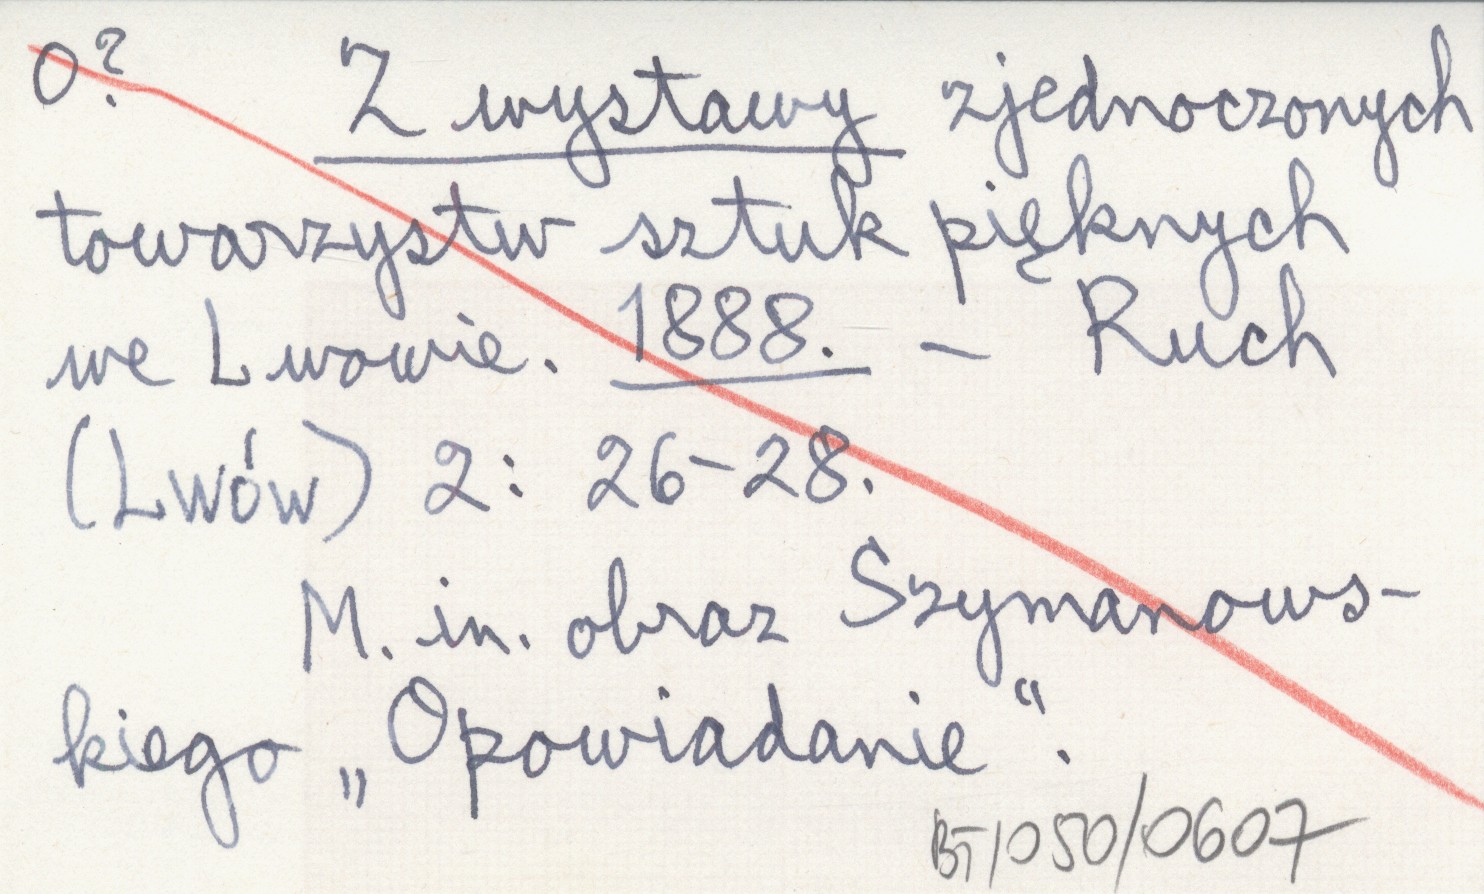 O? Z wystawy zjednoczonych
towarzystw sztuk pięknych
we Lwowie. 1888. – Ruch
(Lwów) 2: 26-28.
M. in. obraz Szymanows-
kiego „Opowiadanie“.
BT/050/0607